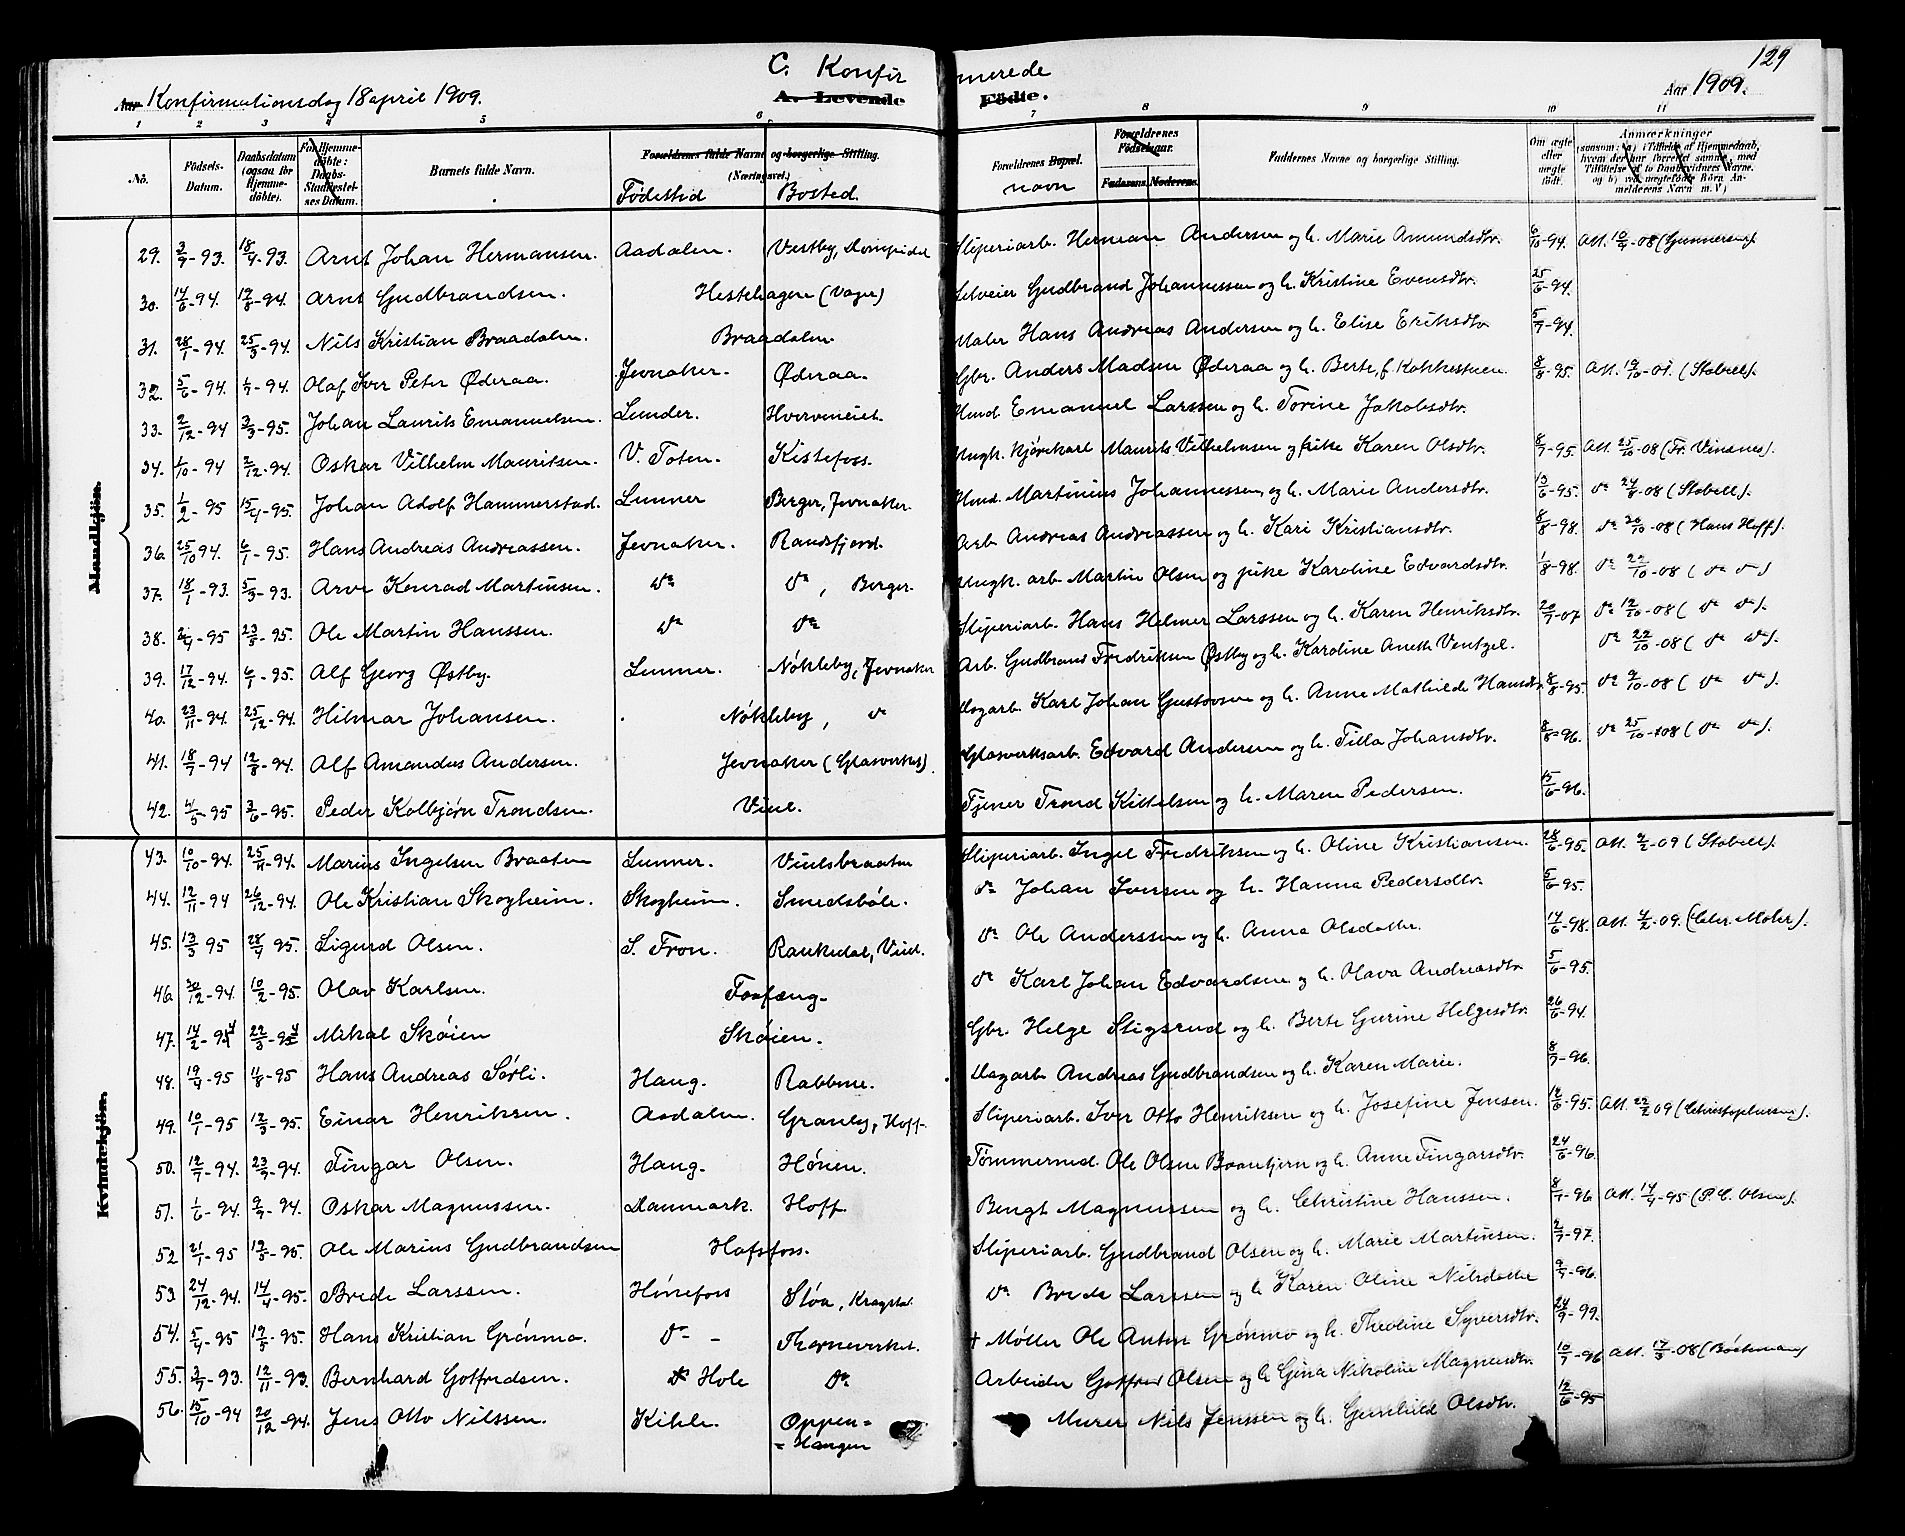 129
C. Konfirmerede
Aar Konfirmationsdag 18 april 1909.
A. Levende Födte.
Aar 1909.
1 2 3 4 5 6 7 8 9 10 11
No. Födsels-Datum. Daabsdatum (ogsaa for Hjemmedöbte). For Hjemmedöbte: Daabs-Stadfestelses Datum. Barnets fulde Navn. Forældrenes fulde Navne og borgerlige Stilling. (Næringsvei.) Fødested Bosted. Forældrenes Bopæl. navn Forældrenes Födselsaar. Faderens. Moderens. Faddernes Navne og borgerlige Stilling. Om ægte eller uægte födt. Anmærkninger
Mandkjön.
29. 3/7-93. 18/4-93. Arnt Johan Hermansen. Aadalen. Vestby, Sliperiarb. Herman Andersen og h. Marie Amundsdtr. 6/10-94. Att. 10/9-08 (Gunnersen).
30. 14/6-94. 19/8-94. Arnt Gudbrandsen. Hestehagen (Vager) Selveier Gudbrand Johannessen og h. Kristine Evensdtr. 25/6-94.
31. 28/1-94. 25/3-94. Nils Kristian Braadalen. Braadalen. Maler Hans Andreas Andersen og h. Elise Eriksdtr 5/7-94.
32. 5/6-94. 1/7-94. Olaf Iver Peter Øderaa. Jevnaker. Øderaa. Gbr. Anders Madsen Øderaa og h. Berte, f. Kokkestuen. 8/8-95. Att. 19/10-08. (Stabell).
33. 2/12-94 3/3-95. Johan Laurits Emanuelsen. Lunder. Hverveneiet. Husd. Emanuel Larssen og h. Torine Jakobsdtr.
34. 1/10-94 2/12-94. Oskar Vilhelm Mauritsen. V. Toten. Kistefoss. Ungk. Kjørekarl Maurits Vilhelmsen og pike Karen Olsdtr. 8/7-95. Att. 25/10-08 (Fr. Vinsnes).
35. 1/2-95 15/4-95. Johan Adolf Hammerstad. Lunner Berger, Jevnaker. Husd. Martinius Johannessen og h. Marie Andersdtr. 13/6-95. do 24/8-08 (Stabell).
36. 25/10 94. 6/1-95. Hans Andreas Andreassen. Jevnaker. Randsfjord. Arb. Andreas Andreassen og h. Kari Kristiansdtr. 8/8-98. do 20/10-08 (Hans Hoff).
37. 18/1-93. 5/3-93. Arve Konrad Martinsen. do do, Berger. Ungk. arb. Martin Olsen og pike Karoline Edvardsdtr. 1/8-98. do 22/10-08 (do do)
38. 2/4-95 23/5-95. Ole Martin Hanssen. do do Sliperiarb. Hans Helmer Larssen og h. Karen Henriksdtr. 20/7-07 do 12/10-08 (do do).
39. 17/12-94. 6/1-95. Alf Georg Østby. Lunner. Nökleby, Jevnaker Arb. Gudbrand Fredriksen Østby og h. Karoline Aneth Ventzel. do 22/10-08 (do do).
40. 23/11-94. 25/12-94. Hilmar Johansen. Nökleby, do Dagarb. Karl Johan Gustavsen og h. Anne Mathilde Hansdtr. 8/8-95. do 9/10-08 (do do).
41. 18/7-94 12/8-94. Alf Amandus Andersen. Jevnaker (Glasverket). Glasverksarb. Edvard Andersen og h. Tilla Johansdtr. 8/8-96. do 25/10-08 (do do).
42. 4/5-95 3/6-95. Peder Kolbjørn Trondsen. Viul. Tjener Trond Kittelsen og h. Maren Pedersen. 15/6-96.
Kvindekjön.
43. 10/10-94. 25/11-94. Marius Ingelsen Braaten Lunner. Viulsbraaten Sliperiarb. Ingel Fredriksen og h. Oline Kristiansen. 28/6-95. Att. 2/2-09 (Stabell).
44. 12/11-94 26/12-94. Ole Kristian Skogheim. Skogheim. Smedsböle. do Johan Iversen og h. Hanna Pedersdtr. 5/6-95.
45. 13/3 95 28/4 95. Sigurd Olsen. S. Fron. Rankedal, Viul. do Ole Anderssen og h. Anna Olsdatter. 14/6-98. Att. 4/2-09. (Chr. Moler).
46. 30/12-94. 10/2-95. Olav Karlsen. Fosfæng. do Karl Johan Edvardsen og h. Olava Andreasdtr. 5/6-95.
47. 14/2-94 22/3-94 Mikal Sköien Sköien. Gbr. Helge Stigsrud og h. Berte Gurine Helgesdtr. 26/6-94.
48. 19/4-95 11/8-95 Hans Andreas Sörli. Haug. Rabben. Dagarb. Andreas Gudbrandsen og h. Karen Marie. 8/7-96.
49. 10/1-95 12/3-95. Einar Henriksen. Aadalen. Granby, Hoff. Sliperiarb. Iver Otto Henriksen og h. Josefine Jensen. 12/6-95. Att. 22/2 09 (Christophersen).
50. 12/7-94. 23/9-94. Fingar Olsen. Haug. Hönen. Tömmermd. Ole Olsen Baantjern og h. Anne Fingarsdtr. 24/6-96.
51. 1/6-94. 9/7-94. Oskar Magnussen. Danmark. Hoff. Bengt Magnussen og h. Christine Hanssen. 8/7-96 Att. 14/9-95 (P. C. Olsen).
52 21/1-95 19/5-95. Ole Marius Gudbrandsen Hofsfoss. Sliperiarb. Gudbrand Olsen og h. Marie Martinsen. 2/7-97.
53. 24/12-94. 14/4-95. Brede Larssen. Hönefoss Støa, Kragstad do Brede Larssen og h. Karen Oline Nilsdatter 9/7-96.
54. 5/4-95 19/5-95. Hans Kristian Grønmo. do - Thorneverket. + Møller Ole Anton Grønmo og h. Theoline Syversdtr. 24/9-99.
55. 3/7-93. 12/11-93. Bernhard Gotfredsen. Hole do Arbeider Gotfred Olsen og h. Gina Nikoline Magnusdtr. 10/7-96 Att. 17/3-08 (Böckman)
56. 15/10-94 20/12-94. Jens Otto Nilssen. Kihle. Oppen-Haugen Murer Nils Jenssen og h. Gunhild Olsdtr. 12/6-95